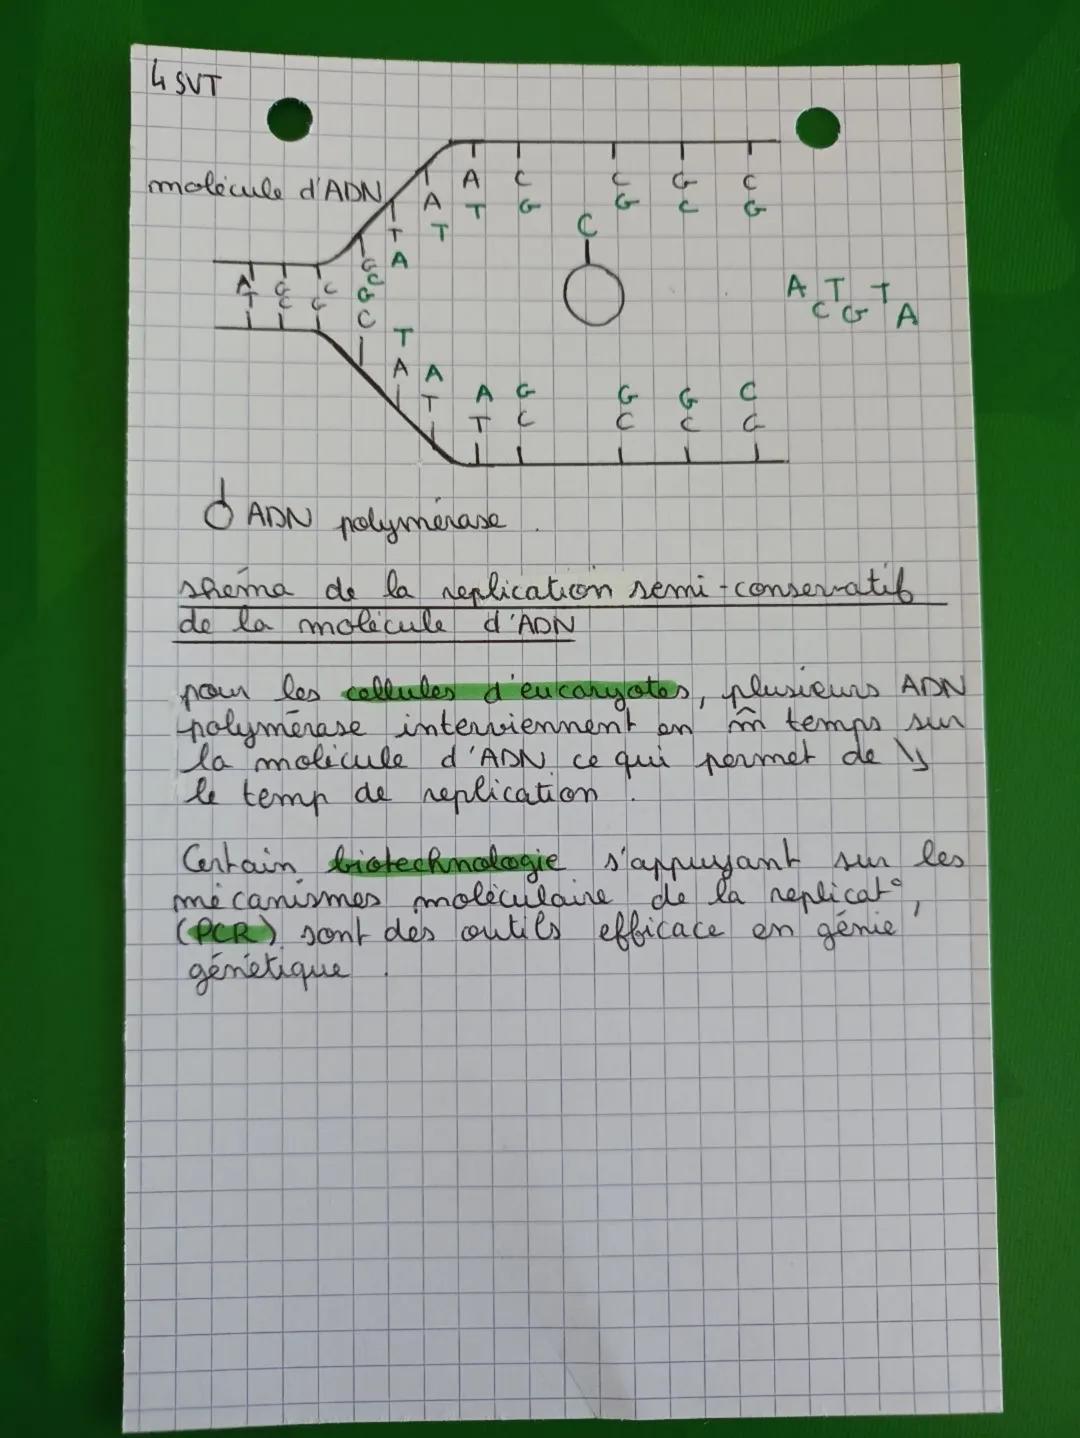 4 SVT
molécule d'ADN
A C C G C
A T G G C G
T
T A
C
A G C G C
T C G G
C
A C T G T A
T
A A A G G G C
T T C C C G
ADN polymérase.
shéma de la replication semi-conservatif
de la molécule d'ADN
pour les cellules d'eucaryotes, plusieurs ADN
polymérase interviennent en m̂ temps sur
la molécule d'ADN ce qui permet de ↘
le temp de replication.
Certain biotechnologie s'appuyant sur les
mécanismes moléculaire de la replicat°,
(PCR) sont des outils efficace en génie
génétique.